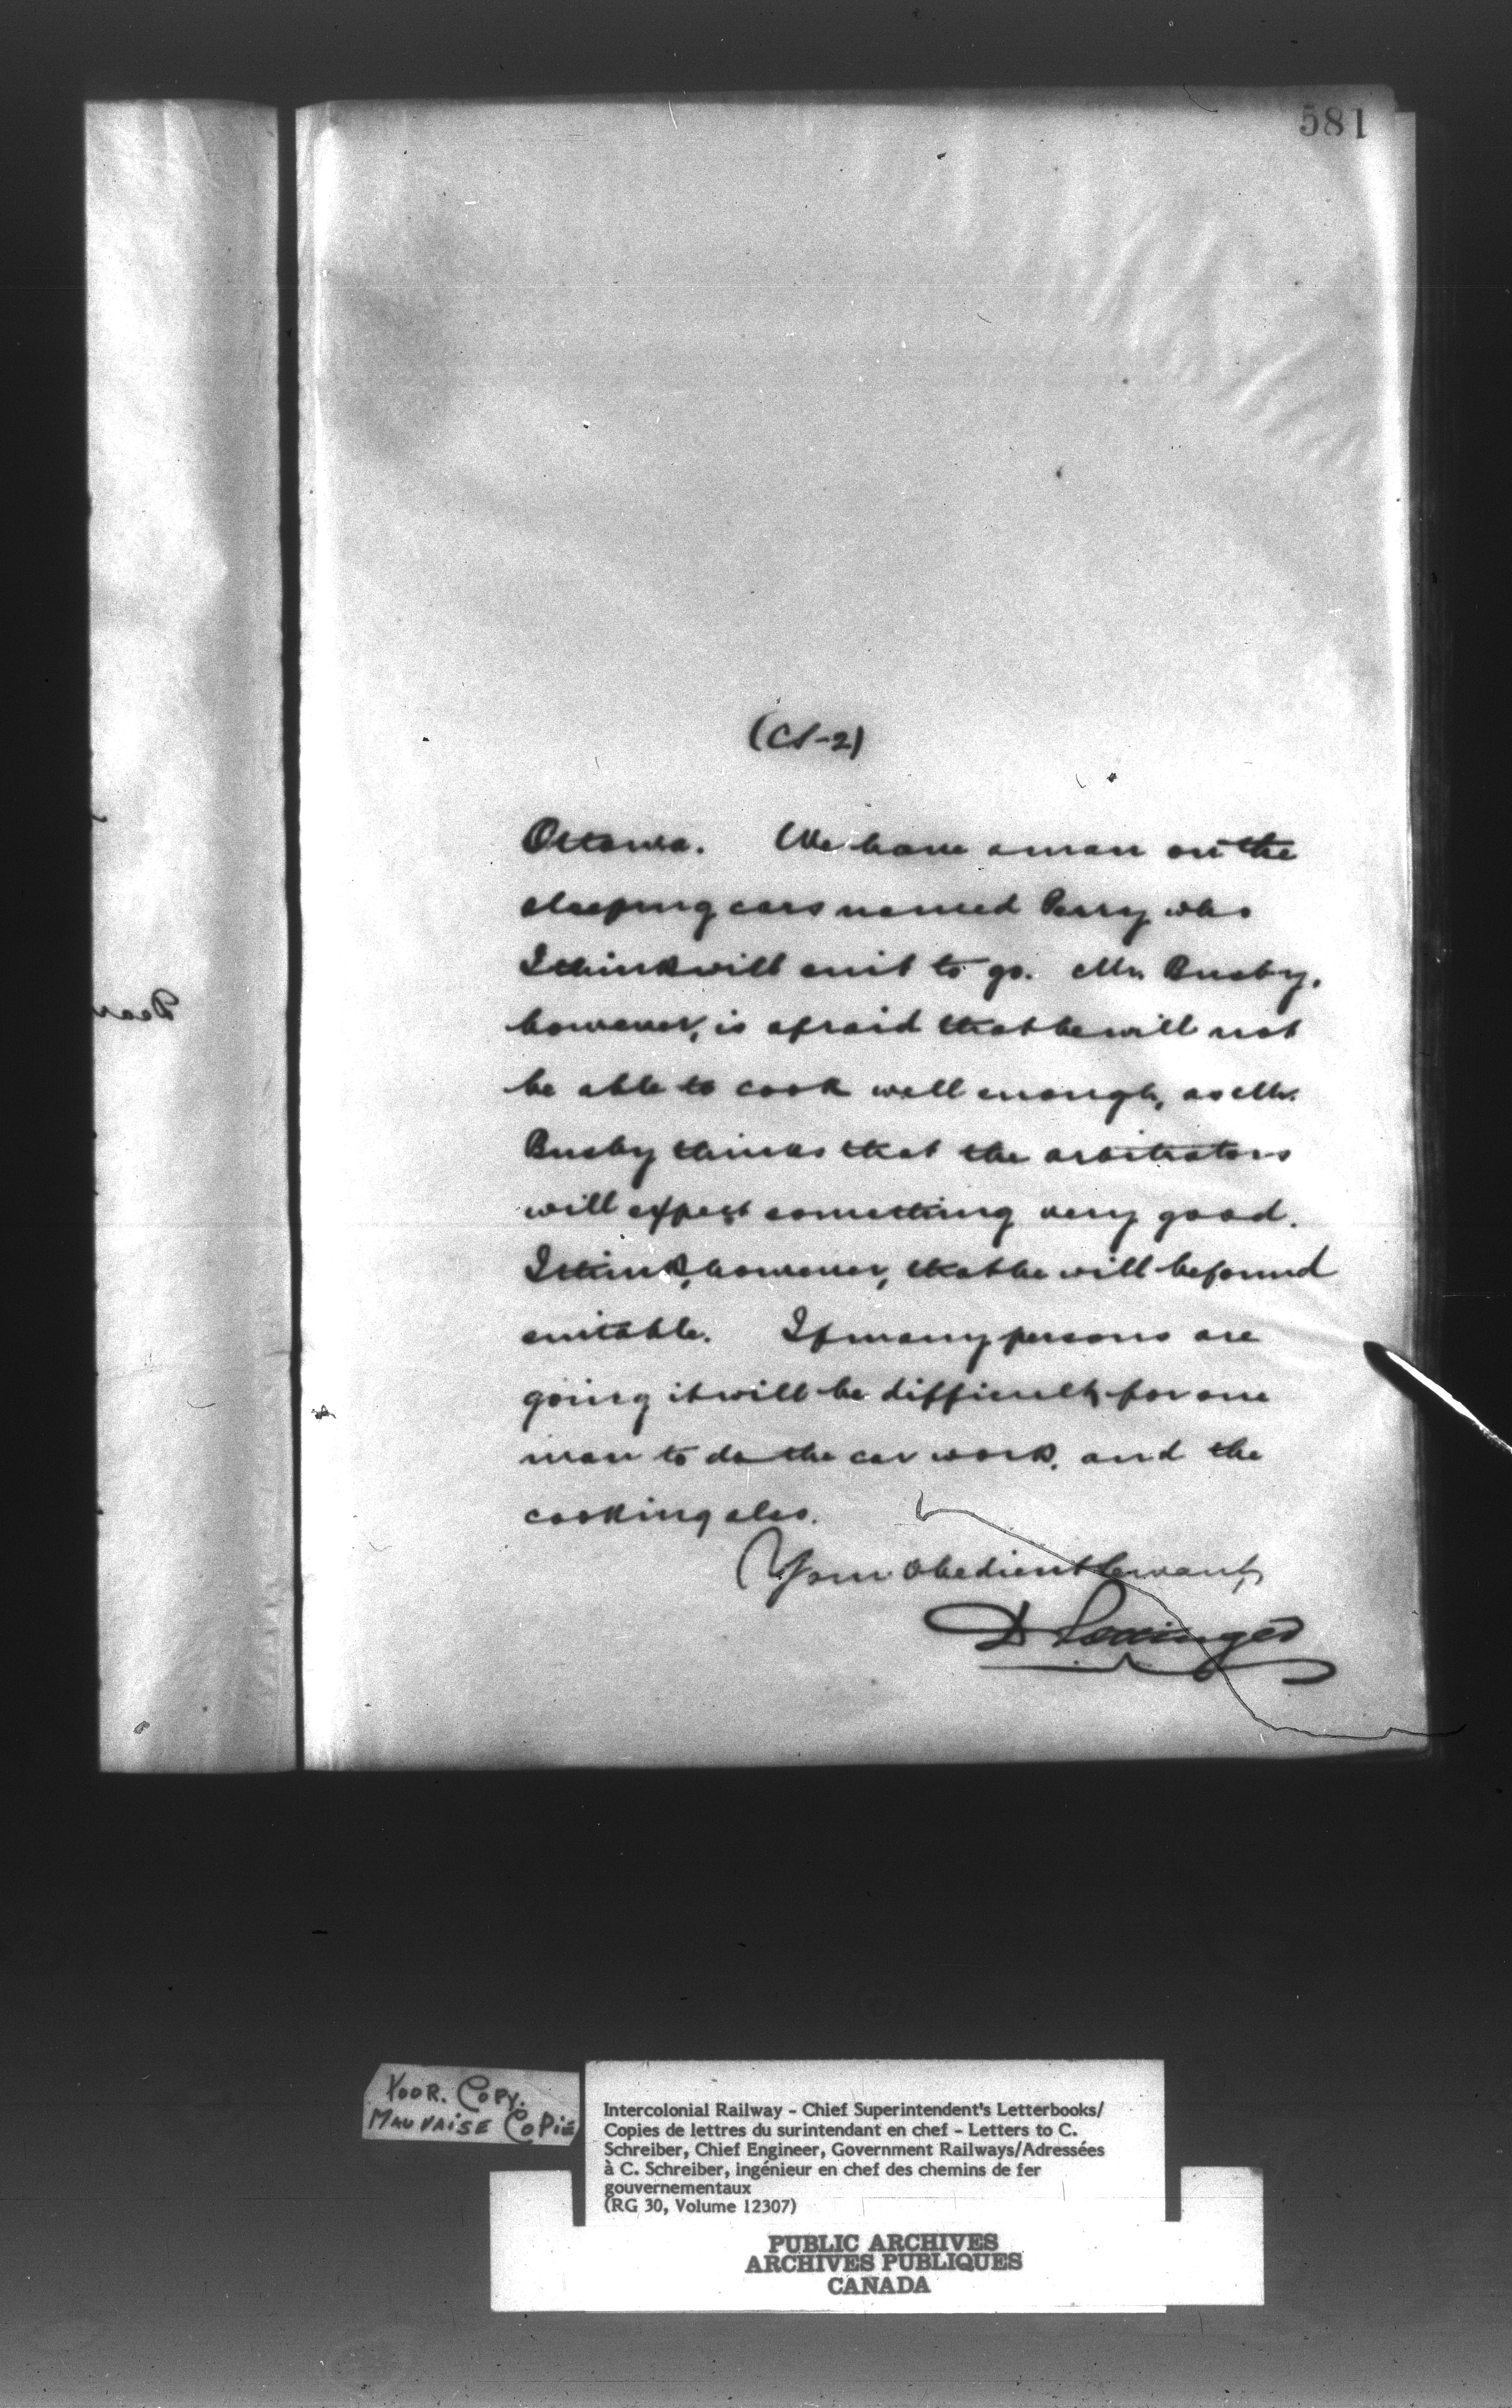 581
(CS-2)
Ottawa. We have a man on the
sleeping cars named Perry who
I think will suit to go. Mr. Busby,
however, is afraid that he will not
be able to cook well enough, as Mr.
Busby thinks that the arbitrators
will expect something very good.
I think, however, that he will be found
suitable. If many persons are
going it will be difficult for one
man to do the car work, and the
cooking also.
Your Obedient Servant,
D Pottinger
POOR. COPY.
MAUVAISE COPIE
Intercolonial Railway - Chief Superintendent's Letterbooks/
Copies de lettres du surintendant en chef - Letters to C.
Schreiber, Chief Engineer, Government Railways/Adressées
à C. Schreiber, ingénieur en chef des chemins de fer
gouvernementaux
(RG 30, Volume 12307)
PUBLIC ARCHIVES
ARCHIVES PUBLIQUES
CANADA